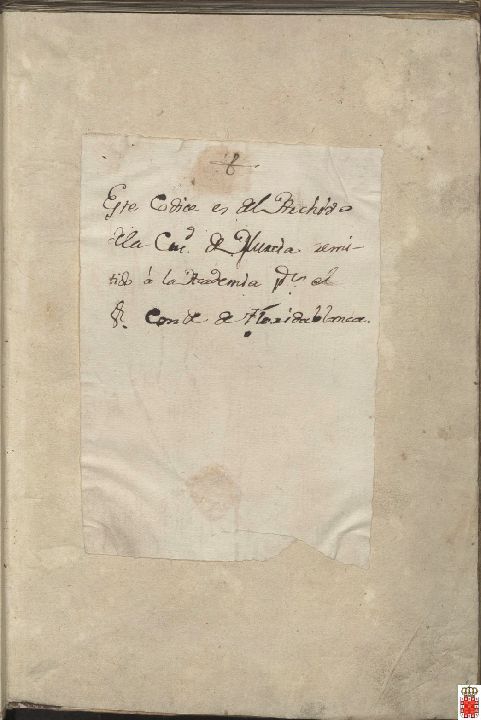 Este Codice es del Archivo
dela Ciu.d de Murcia remi-
tido á la Academia p.r el
S.r Conde de Floridablanca.